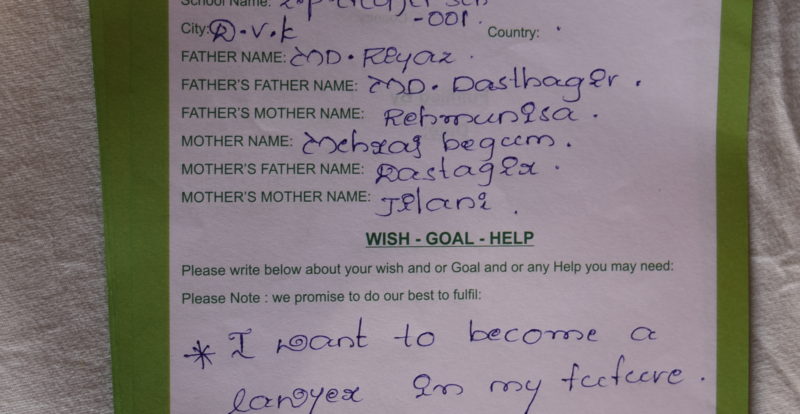 School Name:
-001.
City: D.V.K Country:
FATHER NAME: MD. Reyaz.
FATHER'S FATHER NAME: MD. Dasthagir.
FATHER'S MOTHER NAME: Rehmunisa.
MOTHER NAME: Mehraj begum.
MOTHER'S FATHER NAME: Dastagir.
MOTHER'S MOTHER NAME: Jilani.
WISH - GOAL - HELP
Please write below about your wish and or Goal and or any Help you may need:
Please Note : we promise to do our best to fulfil:
* I want to become a
lawyer in my fucture.